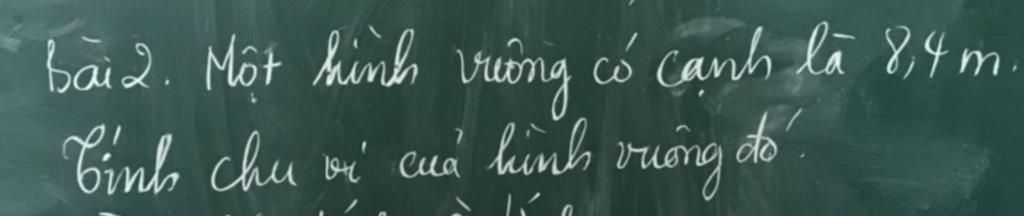 Bài 2. Một hình vuông có cạnh là 8,4 m.
Tính chu vi cuả hình vuông đó.